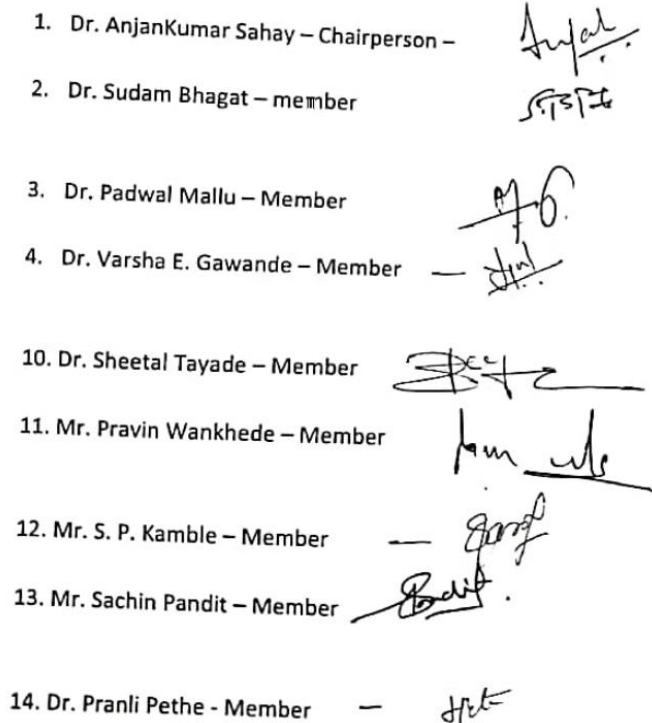 1. Dr. AnjanKumar Sahay – Chairperson –
2. Dr. Sudam Bhagat – member
3. Dr. Padwal Mallu – Member
4. Dr. Varsha E. Gawande – Member —
10. Dr. Sheetal Tayade – Member
11. Mr. Pravin Wankhede – Member
12. Mr. S. P. Kamble – Member —
13. Mr. Sachin Pandit – Member
14. Dr. Pranli Pethe - Member —